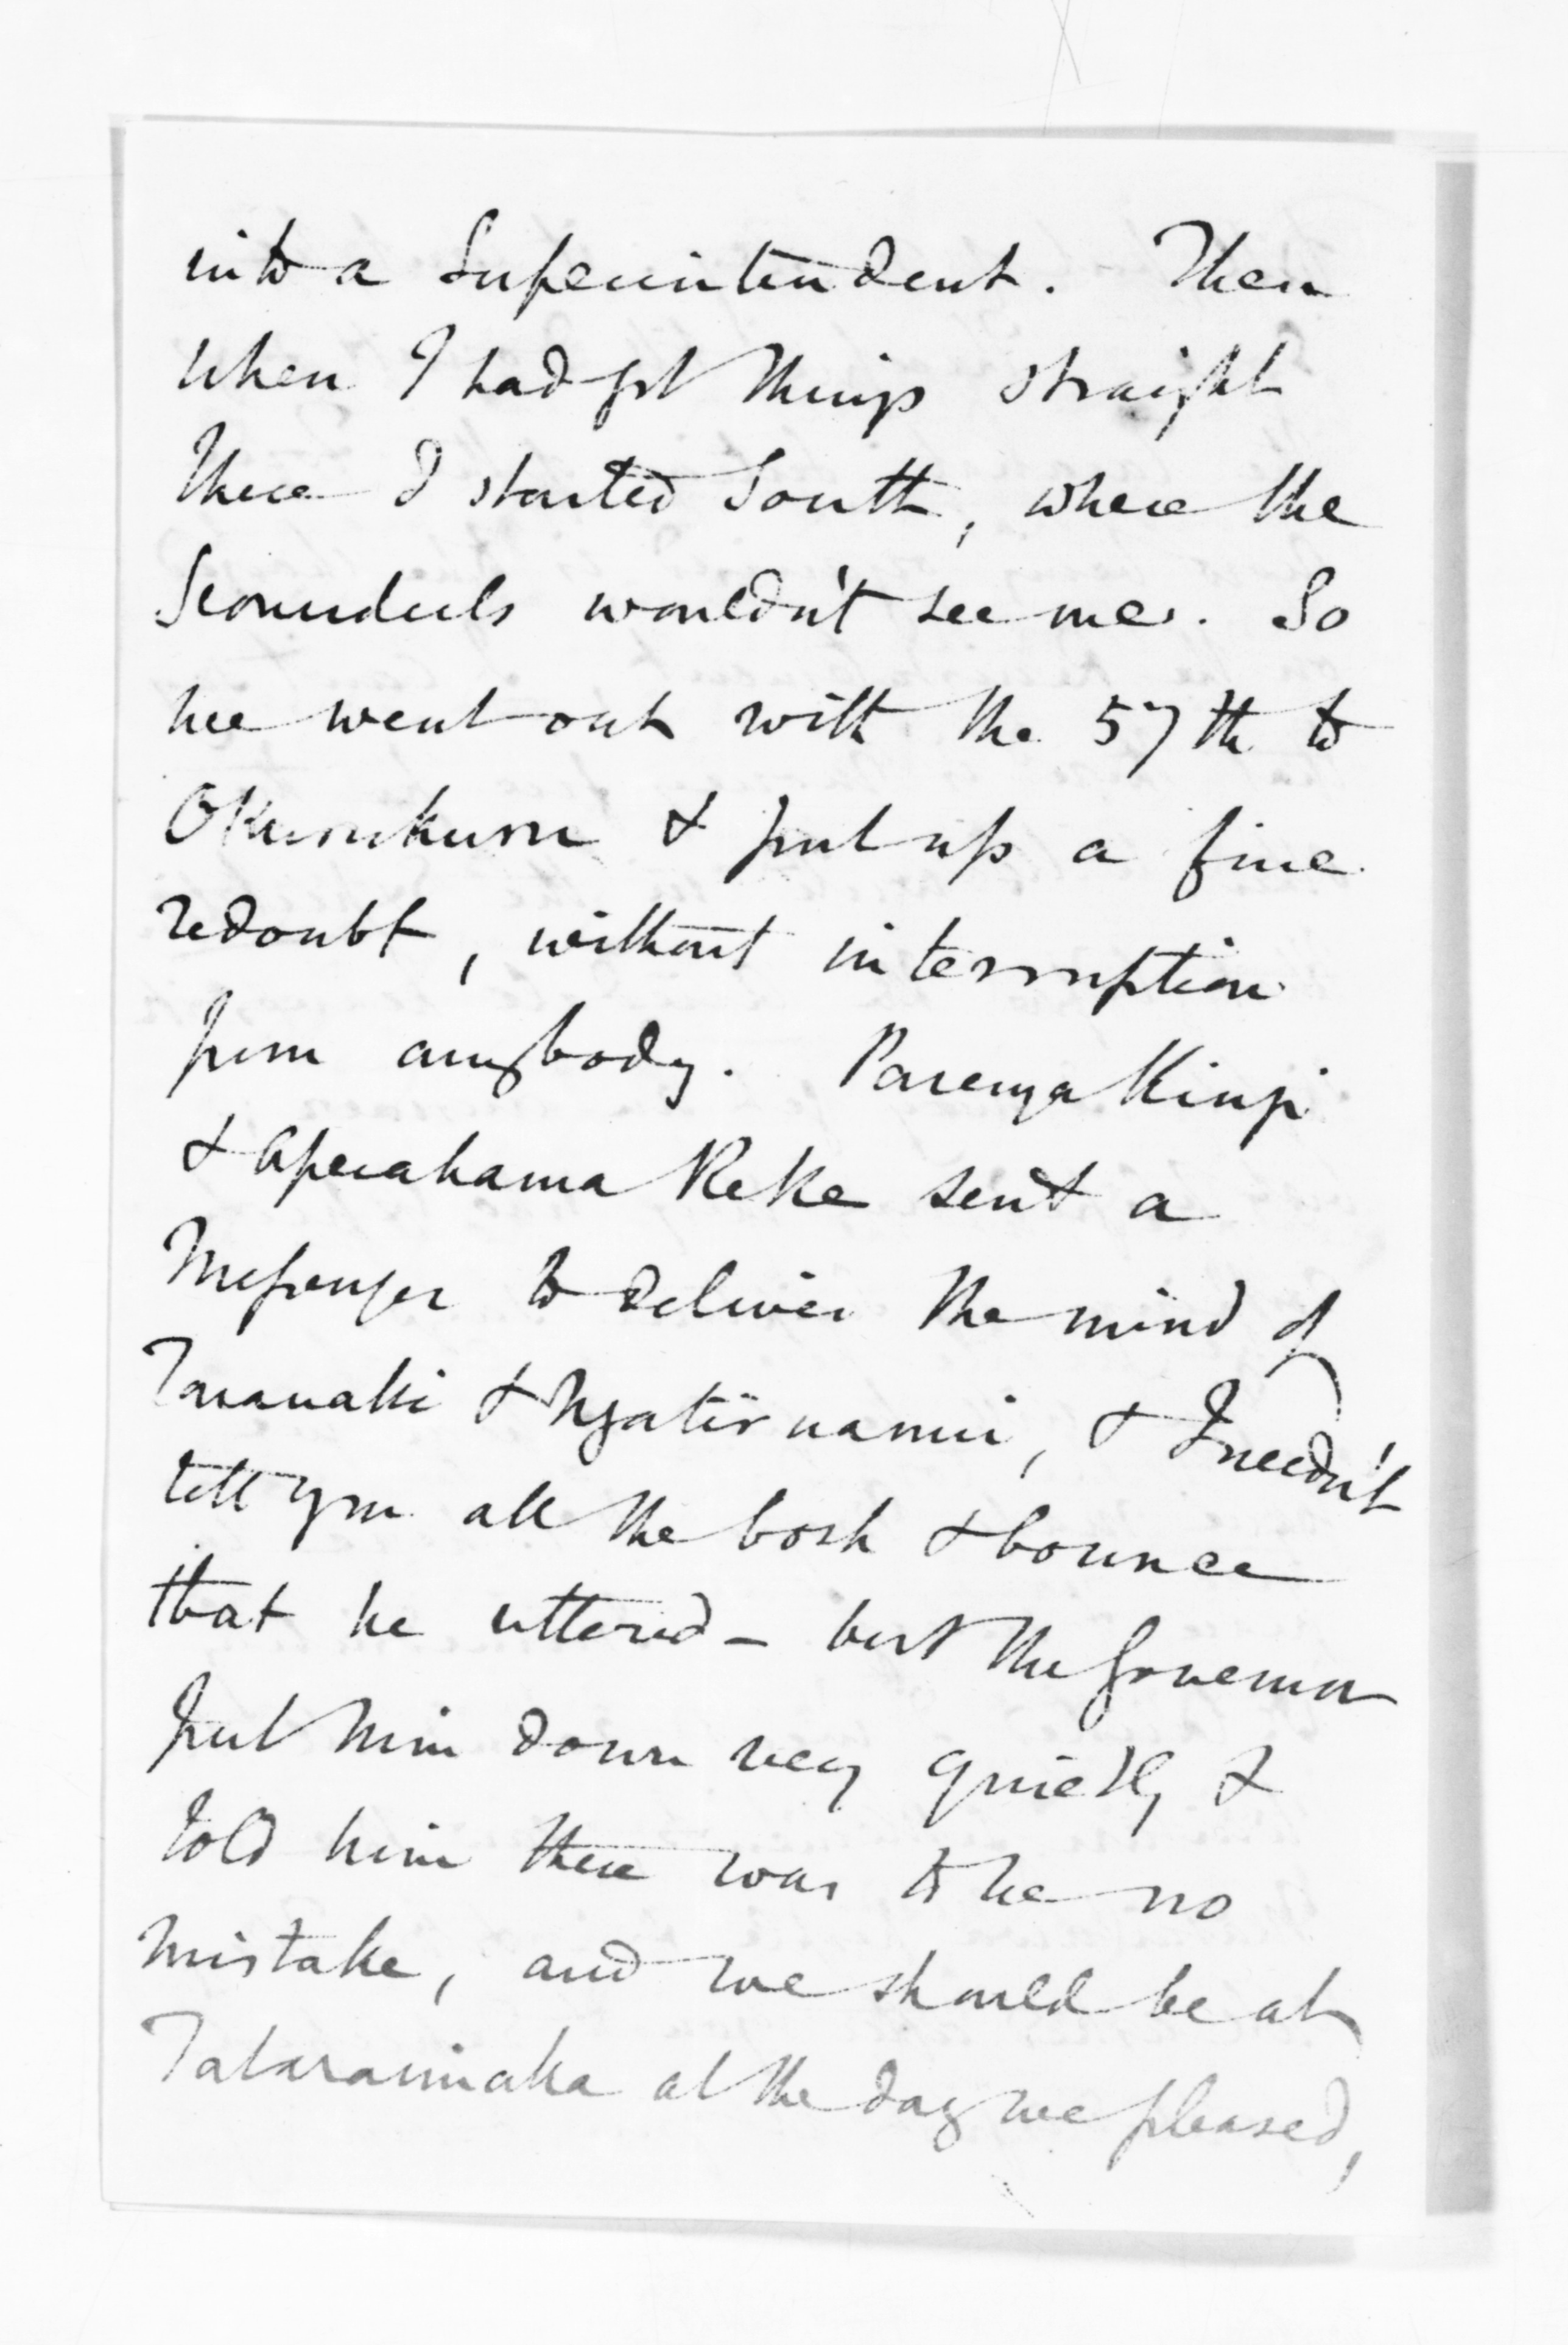 into a Superintendent. Then
when I had got things straight
there I started South, where the
Scoundrels wouldn't see me. So
we went out with the 57th to
Okurukuru & put up a fine
redoubt, without interruption
from anybody. Parenga Kingi
& Aperahama Reke sent a
Messenger to deliver the mind of
Taranaki & Ngatiruanui, & I needn't
tell you all the bosh & bounce
that he uttered – but the Governor
put him down very quietly &
told him there was to be no
mistake, and we should be at
Tataraimaka at the day we pleased,